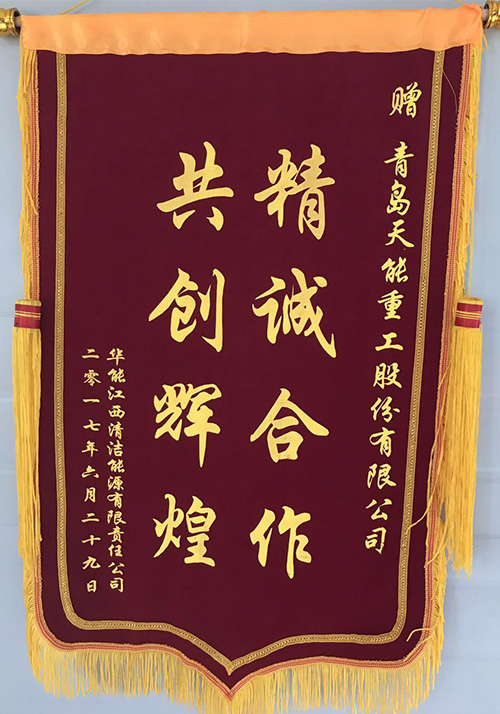 赠 青岛天能重工股份有限公司
精诚合作
共创辉煌
华能江西清洁能源有限责任公司
二零一七年六月二十九日